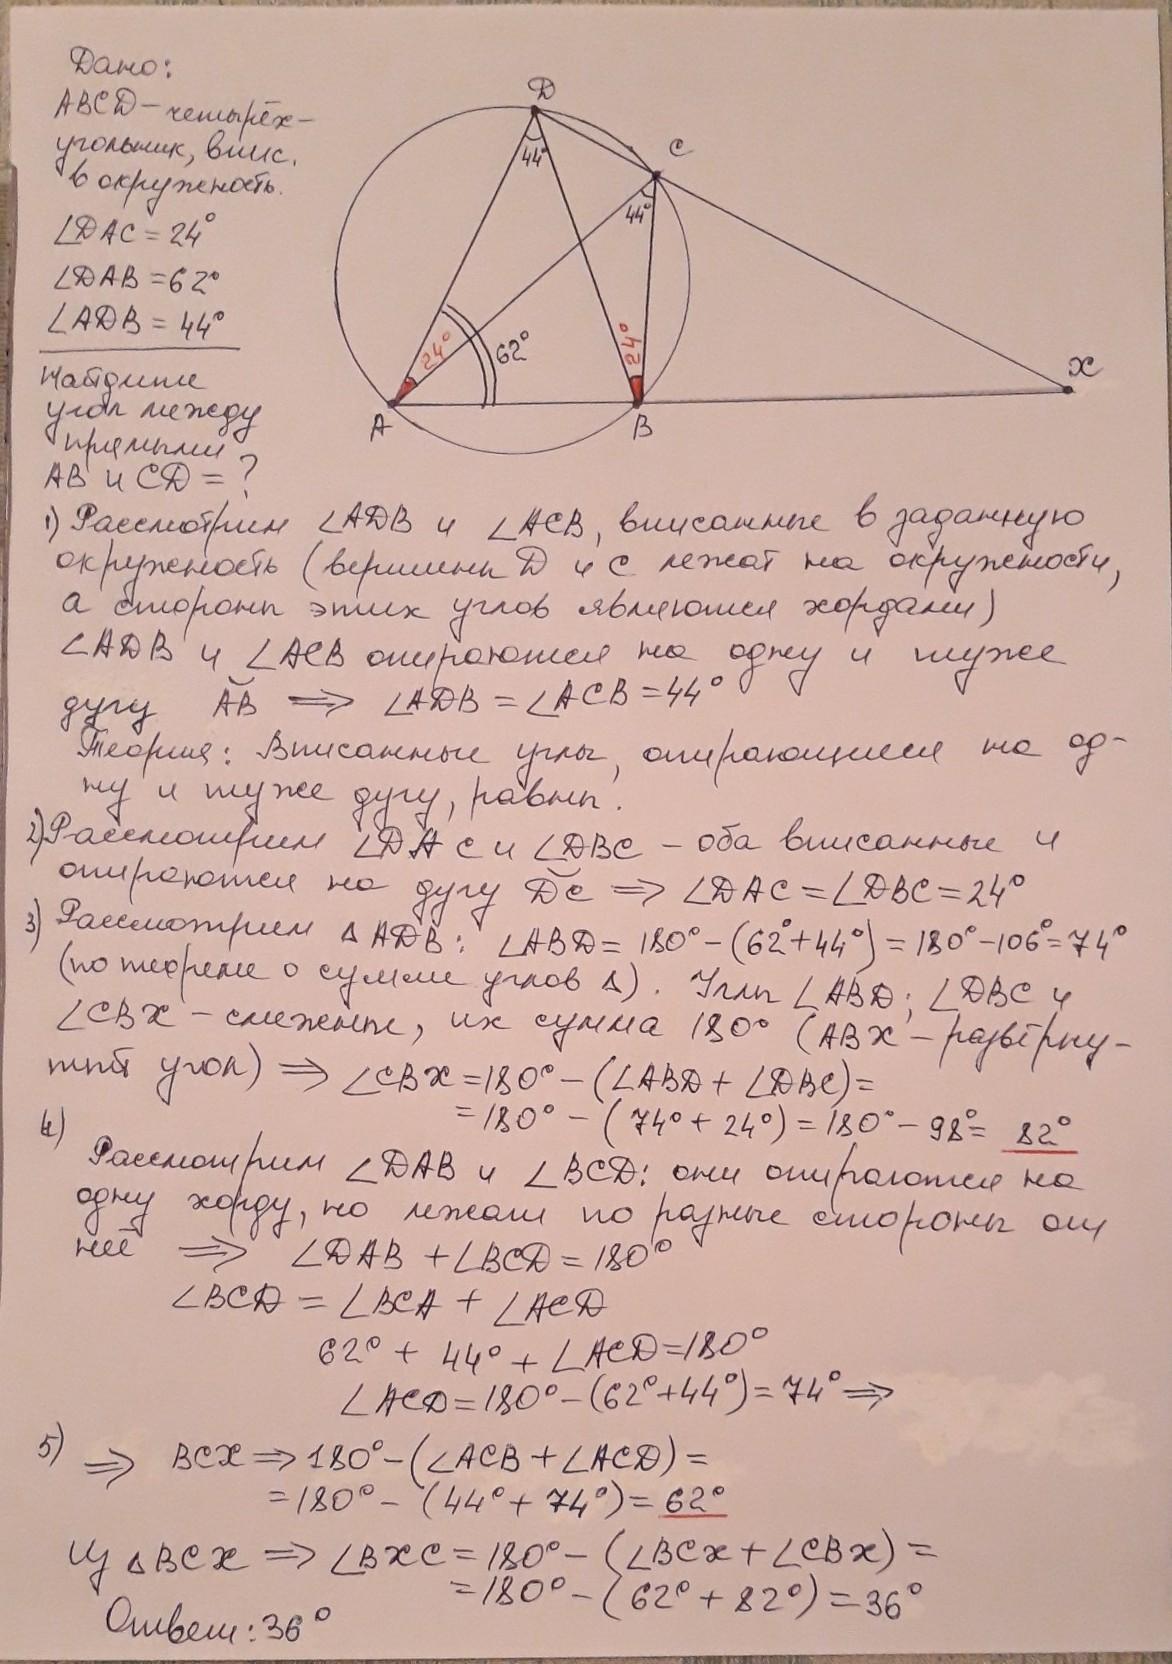 Дано:
ABCD – четырёх-
угольник, впис.
в окружность.
∠DAC = 24°
∠DAB = 62°
∠ADB = 44°
Найдите
угол между
прямыми
AB и CD = ?
D
44°
C
44°
24°
62°
24°
A
B
X
1) Рассмотрим ∠ADB и ∠ACB, вписанные в заданную
окружность (вершины D и C лежат на окружности,
а стороны этих углов являются хордами)
∠ADB и ∠ACB опираются на одну и туже
дугу ÃB̃ ⟹ ∠ADB = ∠ACB = 44°
Теория: Вписанные углы, опирающиеся на од-
ну и туже дугу, равны.
2) Рассмотрим ∠DAC и ∠DBC – оба вписанные и
опираются на дугу D̆C ⟹ ∠DAC = ∠DBC = 24°
3) Рассмотрим ∆ADB: ∠ABD = 180° – (62° + 44°) = 180° – 106° = 74°
(по теореме о сумме углов ∆). Углы ∠ABD; ∠DBC и
∠CBX – смежные, их сумма 180° (ABX – развёрну-
тый угол) ⟹ ∠CBX = 180° – (∠ABD + ∠DBC) =
= 180° – (74° + 24°) = 180° – 98° = 82°
4)
Рассмотрим ∠DAB и ∠BCD: они опираются на
одну хорду, но лежат по разные стороны от
неё ⟹ ∠DAB + ∠BCD = 180°
∠BCD = ∠BCA + ∠ACD
62° + 44° + ∠ACD = 180°
∠ACD = 180° – (62° + 44°) = 74° ⟹
5) ⟹ BCX ⟹ 180° – (∠ACB + ∠ACD) =
= 180° – (44° + 74°) = 62°
Из ∆BCX ⟹ ∠BXC = 180° – (∠BCX + ∠CBX) =
= 180° – (62° + 82°) = 36°
Ответ: 36°